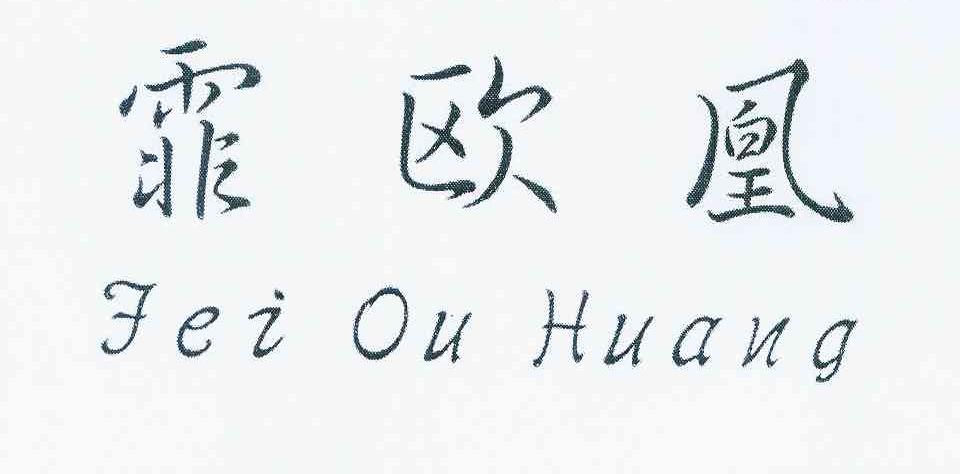 霏欧凰
Fei Ou Huang